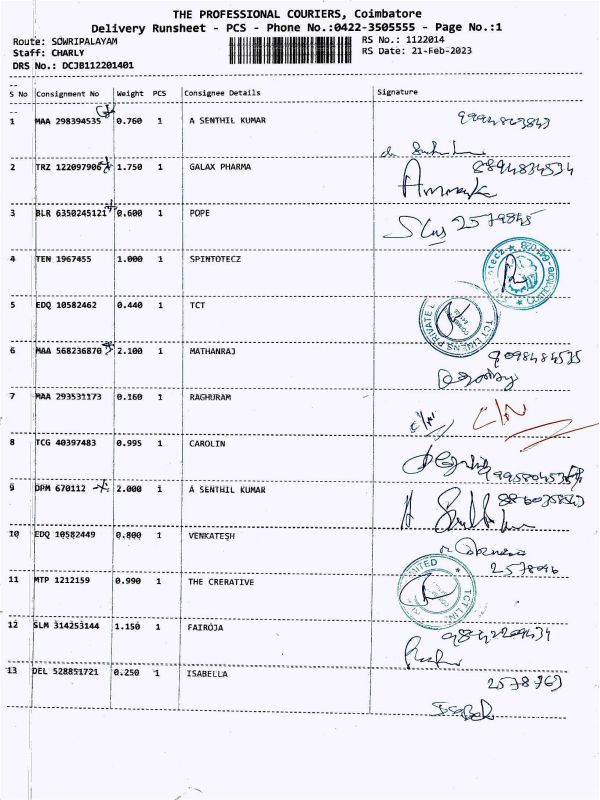 THE PROFESSIONAL COURIERS, Coimbatore
Delivery Runsheet - PCS - Phone No.:0422-3505555 - Page No.:1
Route: SOWRIPALAYAM
RS No.: 1122014
Staff: CHARLY
RS Date: 21-Feb-2023
DRS No.: DCJB112201401
S No Consignment No Weight PCS Consignee Details Signature
1 MAA 298394535 0.760 1 A SENTHIL KUMAR
2 TRZ 122097906 1.750 1 GALAX PHARMA
8894834534
3 BLR 6350245121 0.600 1 POPE
2579845
4 TEN 1967455 1.000 1 SPINTOTECZ
5 EDQ 10582462 0.440 1 TCT
TCT LINENS PRIVATE
6 MAA 568236870 2.100 1 MATHANRAJ
9098484535
7 MAA 293531173 0.160 1 RAGHURAM
C/N C/N
8 TCG 40397483 0.995 1 CAROLIN
9 DPM 670112 2.000 1 A SENTHIL KUMAR
10 EDQ 10582449 0.800 1 VENKATESH
11 MTP 1212159 0.990 1 THE CRERATIVE
TCT LIN
12 SLM 314253144 1.150 1 FAIROJA
13 DEL 528851721 0.250 1 ISABELLA
2578963